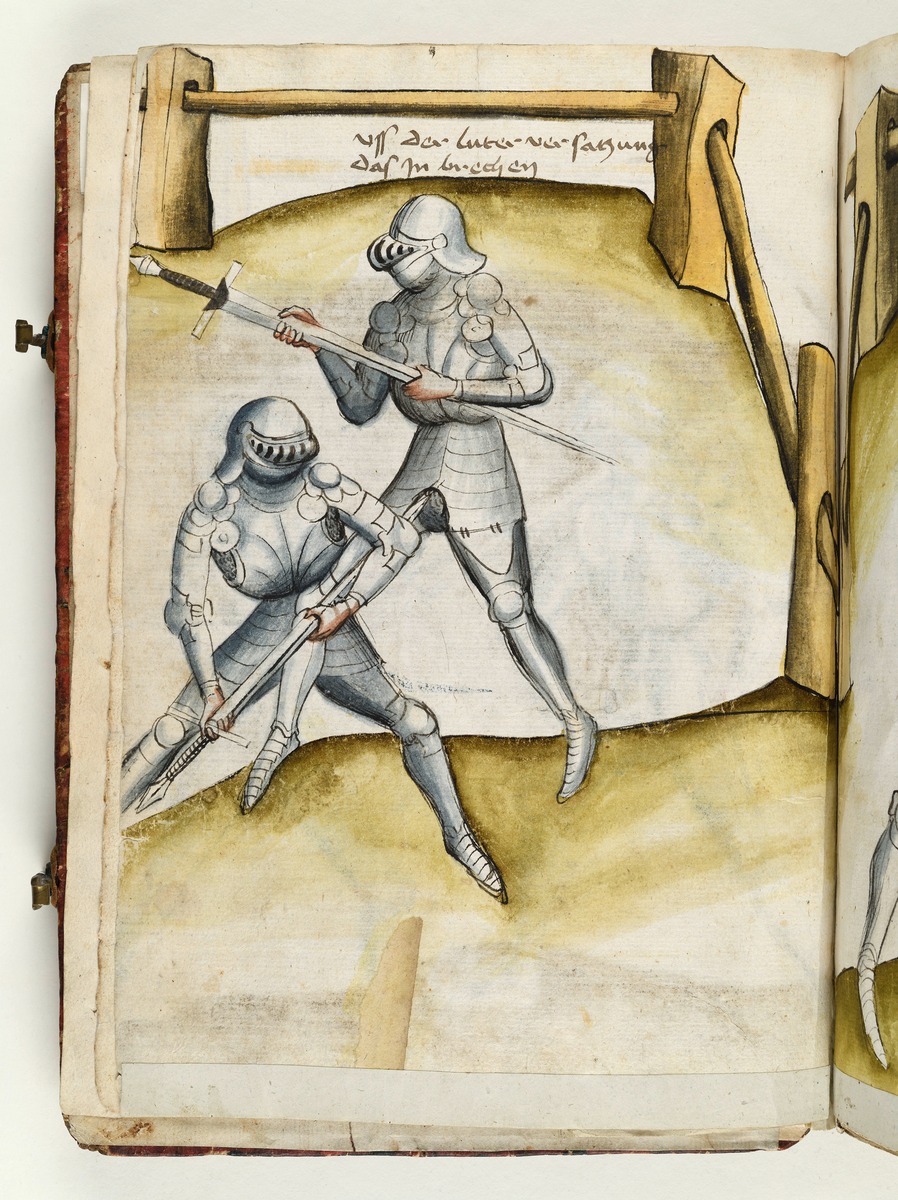 vss der luter ver satzung
das In brechen